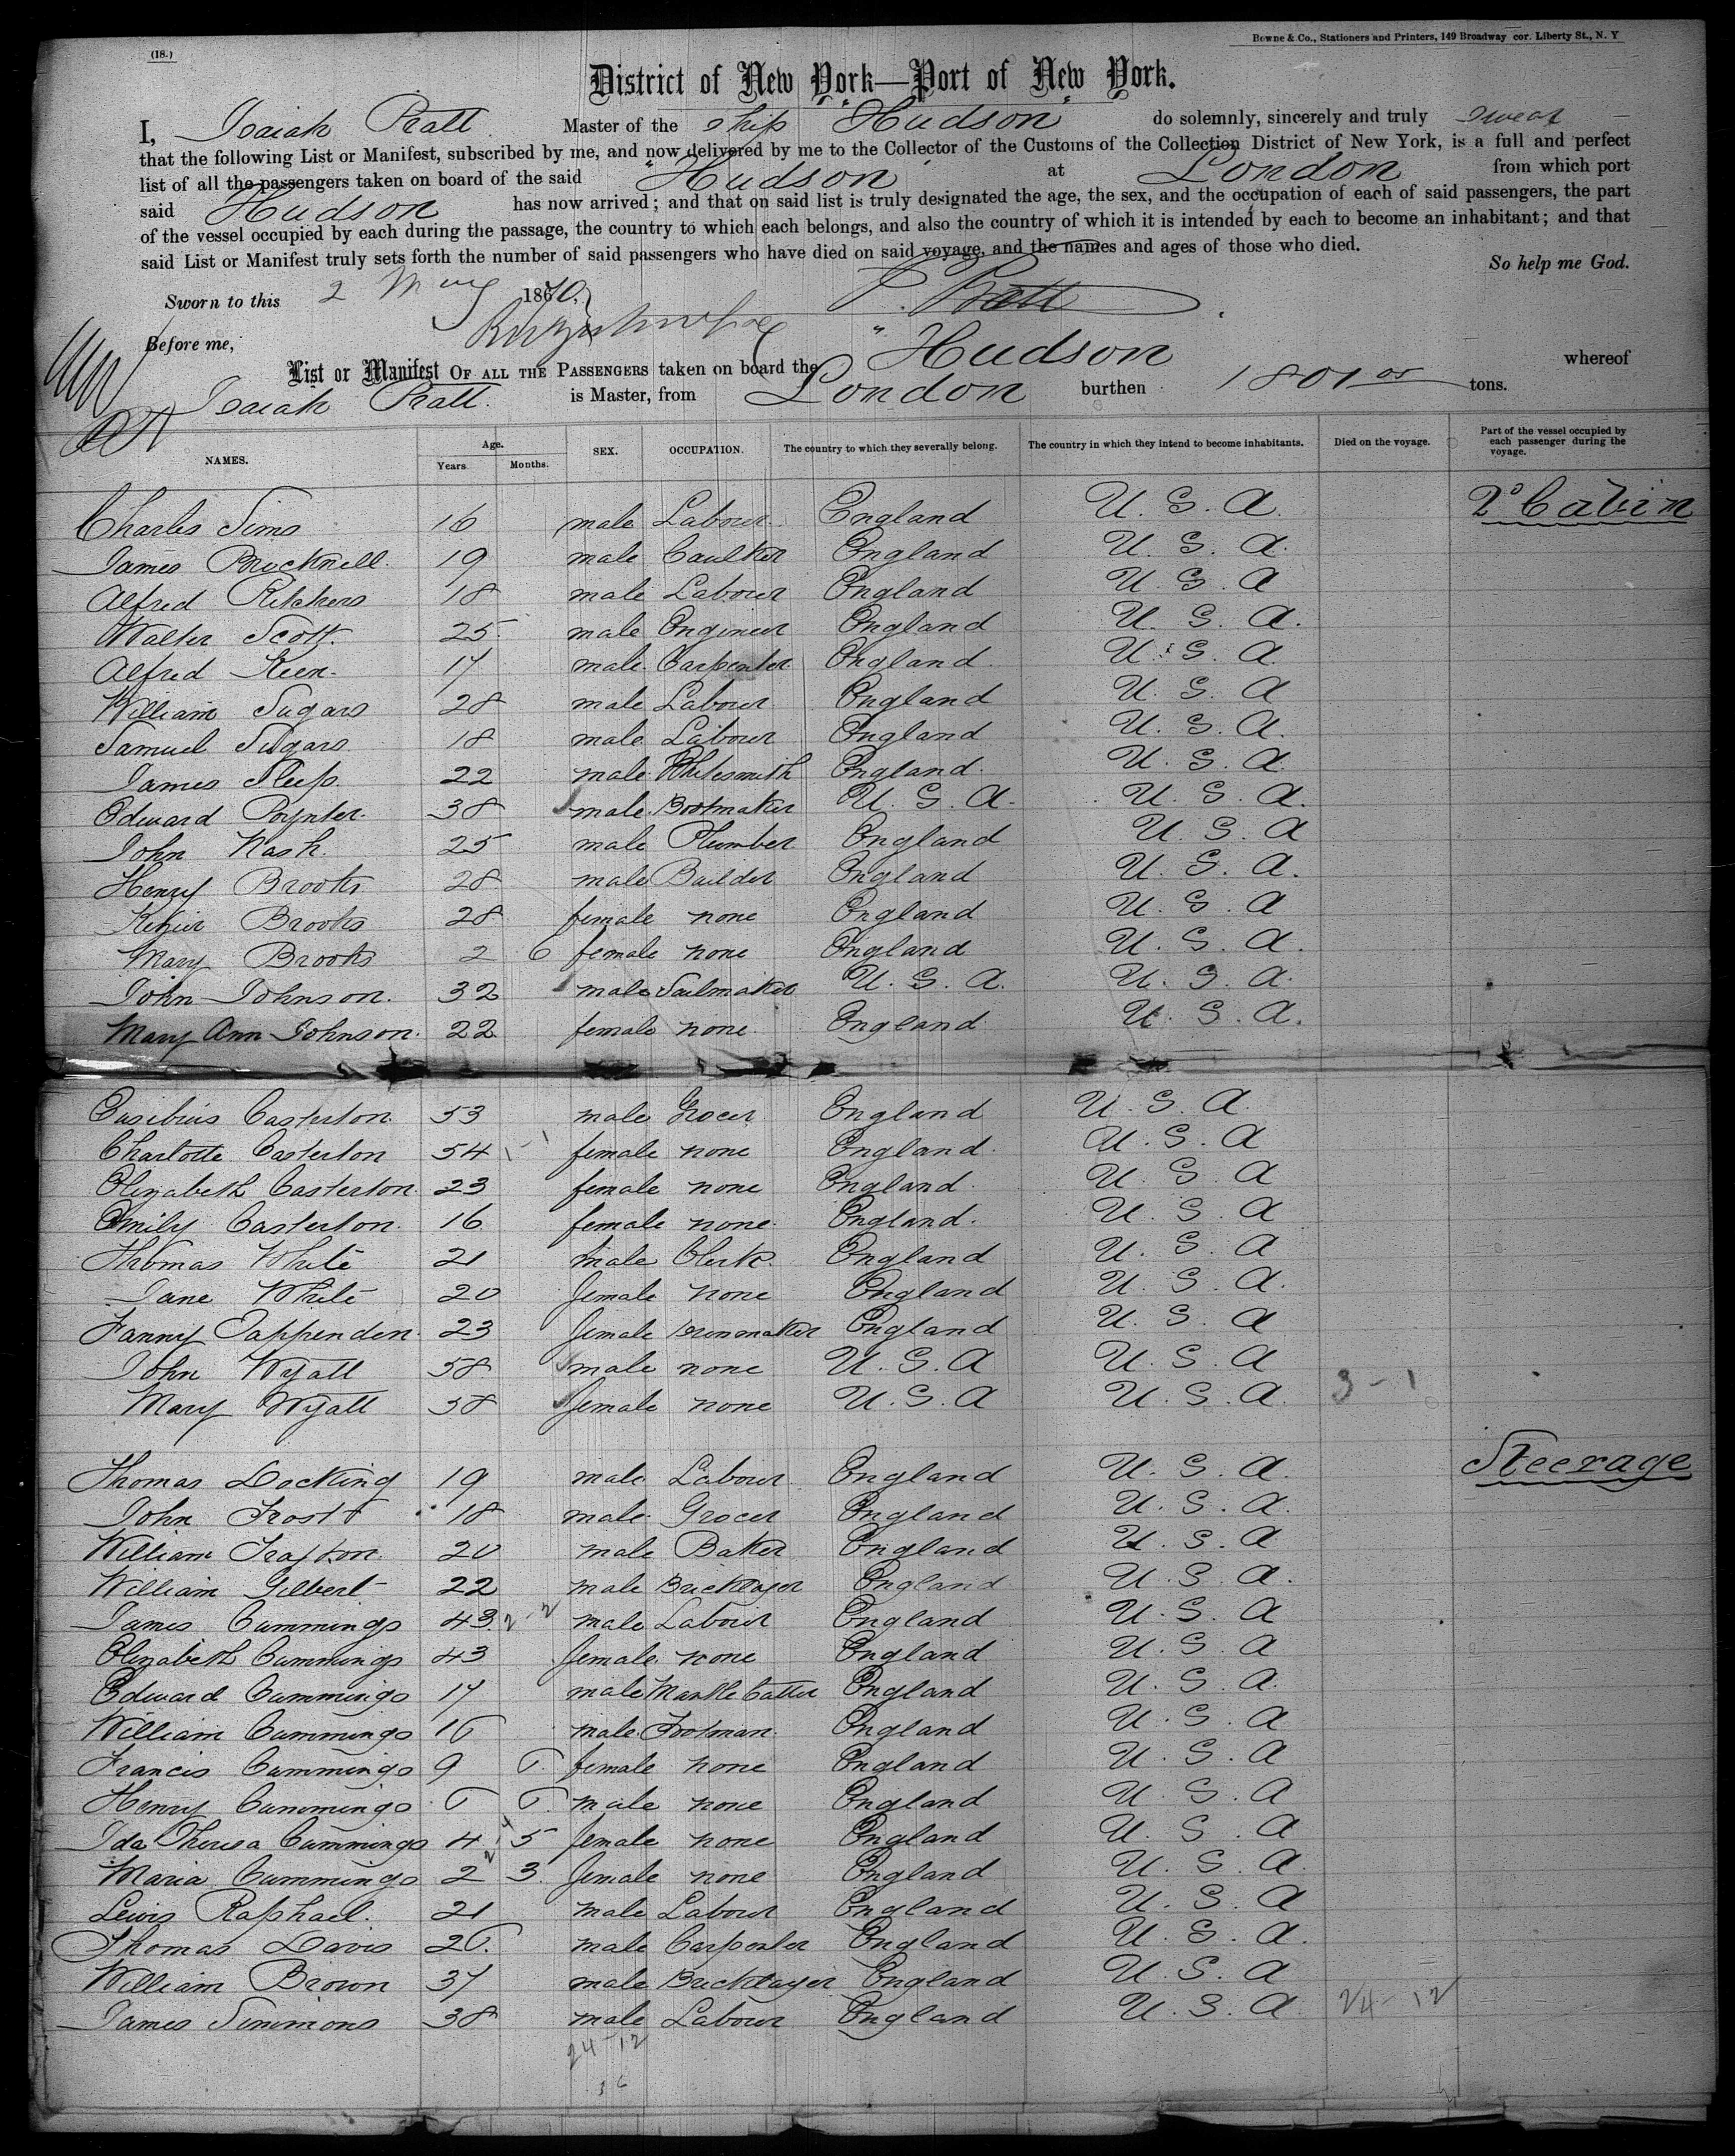 (18.)
Bowne & Co., Stationers and Printers, 149 Broadway cor. Liberty St., N. Y
District of New York—Port of New York.
I, Isaiah Pratt Master of the ship "Hudson" do solemnly, sincerely and truly swear
that the following List or Manifest, subscribed by me, and now delivered by me to the Collector of the Customs of the Collection District of New York, is a full and perfect
list of all the passengers taken on board of the said "Hudson" at London from which port
said Hudson has now arrived; and that on said list is truly designated the age, the sex, and the occupation of each of said passengers, the part
of the vessel occupied by each during the passage, the country to which each belongs, and also the country of which it is intended by each to become an inhabitant; and that
said List or Manifest truly sets forth the number of said passengers who have died on said voyage, and the names and ages of those who died.
So help me God.
Sworn to this 2 May 1870, I. Pratt
Before me,
List or Manifest OF ALL THE PASSENGERS taken on board the "Hudson whereof
Isaiah Pratt. is Master, from London burthen 1801 05 tons.
NAMES. Age. Years Months. SEX. OCCUPATION. The country to which they severally belong. The country in which they intend to become inhabitants. Died on the voyage. Part of the vessel occupied by each passenger during the voyage.
Charles Sims 16 male Labour England U. S. A. 2° Cabin
James Brucknell 19 male Caulker England U. S. A.
Alfred 18 male Labour England U. S. A
Walter Scott. 25 male Engineer England U. S. A.
Alfred Keen. 17 male Carpenter England U. S. A.
William Sugars 28 male Labour England U. S. A
Samuel Sugars 18 male Labour England U. S. A.
James Sleep. 22 male Whitesmith England U. S. A.
Edward Poynter. 38 male Bootmaker U. S. A. U. S. A.
John Nash. 25 male Plumber England U. S. A
Henry Brooks 28 male Builder England U. S. A.
Brooks 28 female none England U. S. A
Mary Brooks 2 6 female none England U. S. A.
John Johnson. 32 male Sailmaker U. S. A. U. S. A.
Mary Ann Johnson. 22 female none England U. S. A.
Eusibius Casterton. 53 male Grocer England U. S. A.
Charlotte Casterton 54 female none England. U. S. A
Elizabeth Casterton. 23 female none England. U. S. A
Emily Casterton. 16 female none. England. U. S. A
Thomas White 21 male Clerk. England U. S. A
Jane White 20 female none England U. S. A.
Fanny Tappenden. 23 female England U. S. A
John Wyatt 58 male none U. S. A U. S. A
Mary Wyatt 58 female none U. S. A U. S. A. 3-1
Thomas Docking 19 male Labour England U. S. A. Steerage
John Frost 18 male Grocer England U. S. A.
William 20 male Baker England U. S. A
William Gilbert 22 male Bricklayer England U. S. A.
James Cummings 43 2-2 male Labour England U. S. A
Elizabeth Cummings 43 female none England U. S. A
Edward Cummings 17 male Mantle Cutter England U. S. A.
William Cummings 16 male Footman England U. S. A
Francis Cummings 9 6 female none England U. S. A
Henry Cummings 6 6 male none England U. S. A
Ida Theresa Cummings 4 5 female none England U. S. A
Maria Cummings 2 3 female none England U. S. A.
Lewis Raphael. 21 male Labour England U. S. A
Thomas Davis 26. male Carpenter England U. S. A.
William Brown 37 male Bricklayer England U. S. A
James Simmons 38 male Labour England U. S. A 24-12
24-12